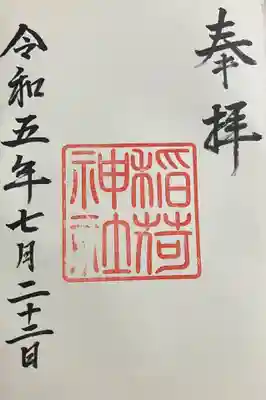 奉拝
稲荷
神社
令和五年七月二十三日